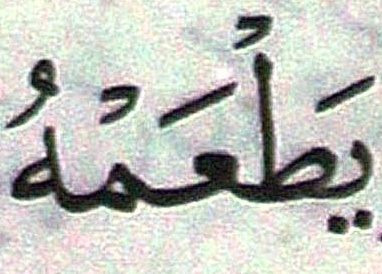 يَطْعَمْهُ